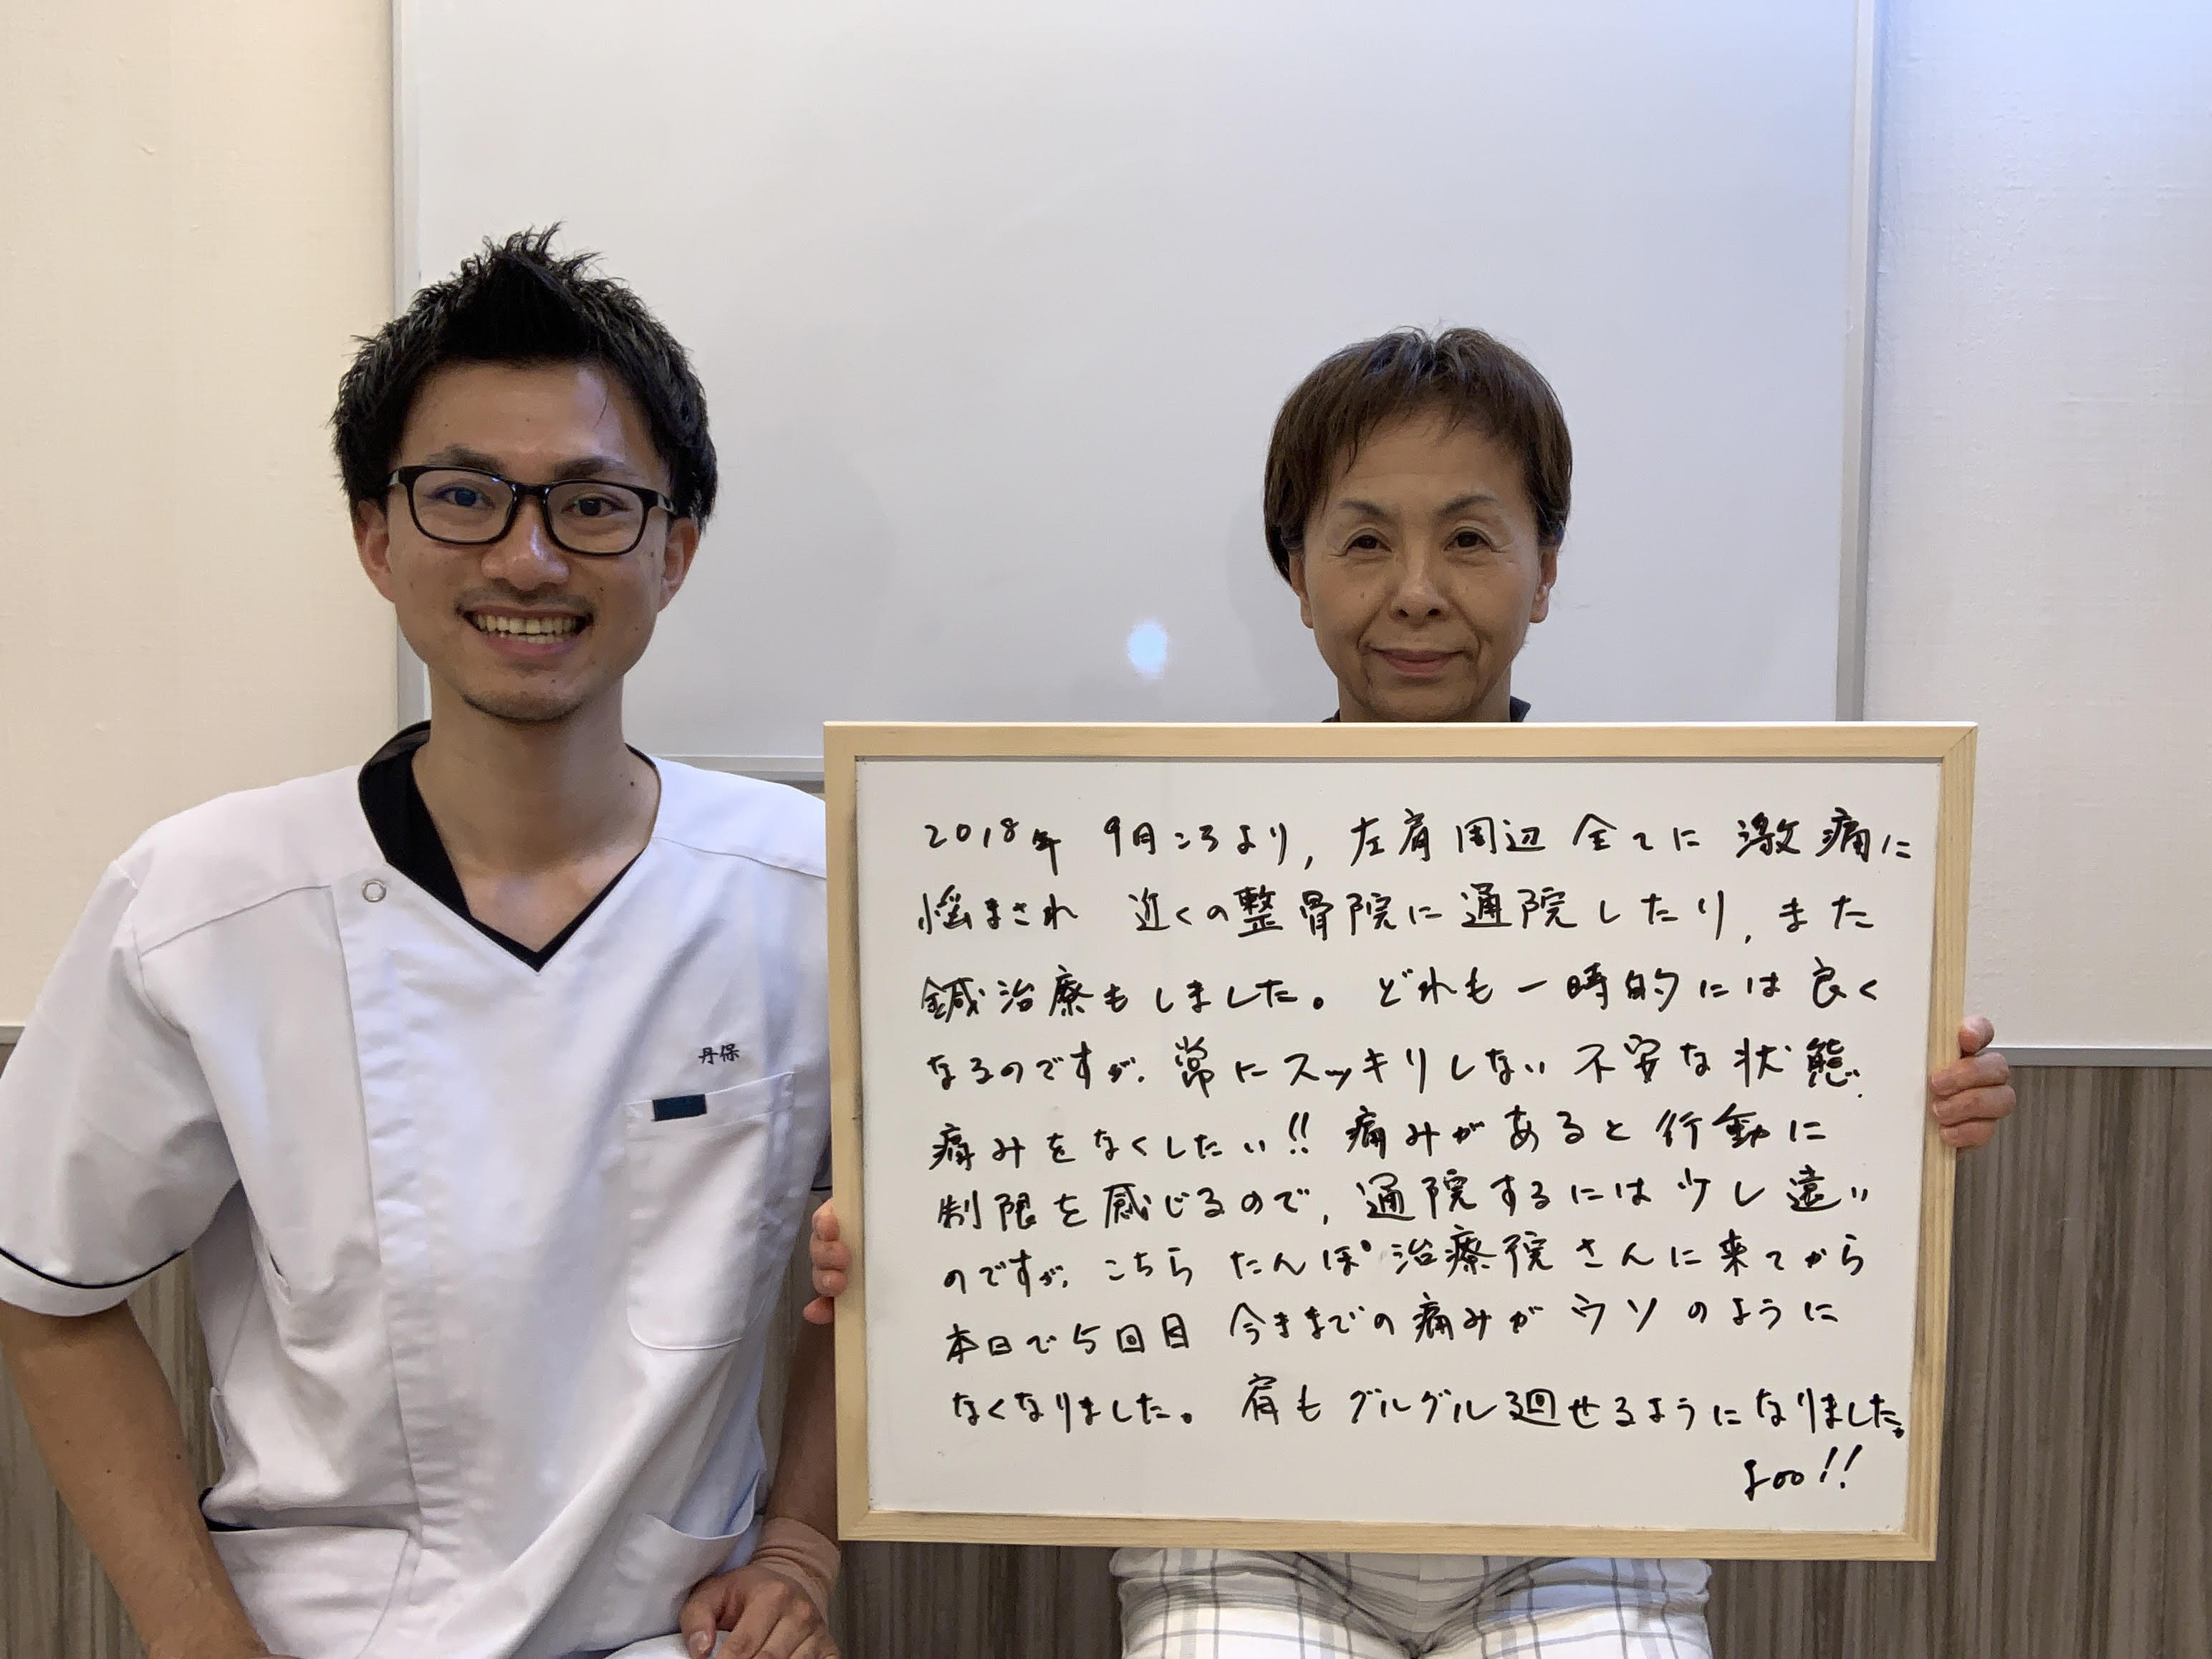 丹保
2018年 9月ころより、左肩周辺全てに激痛に
悩まされ 近くの整骨院に通院したり、また
鍼治療もしました。どれも一時的には良く
なるのですが、常にスッキリしない不安な状態.
痛みをなくしたい!! 痛みがあると行動に
制限を感じるので、通院するには少し遠い
のですが、こちら たんぽ治療院さんに来てから
本日で5回目 今きまでの痛みが ウソのように
なくなりました。肩もグルグル廻せるようになりました。